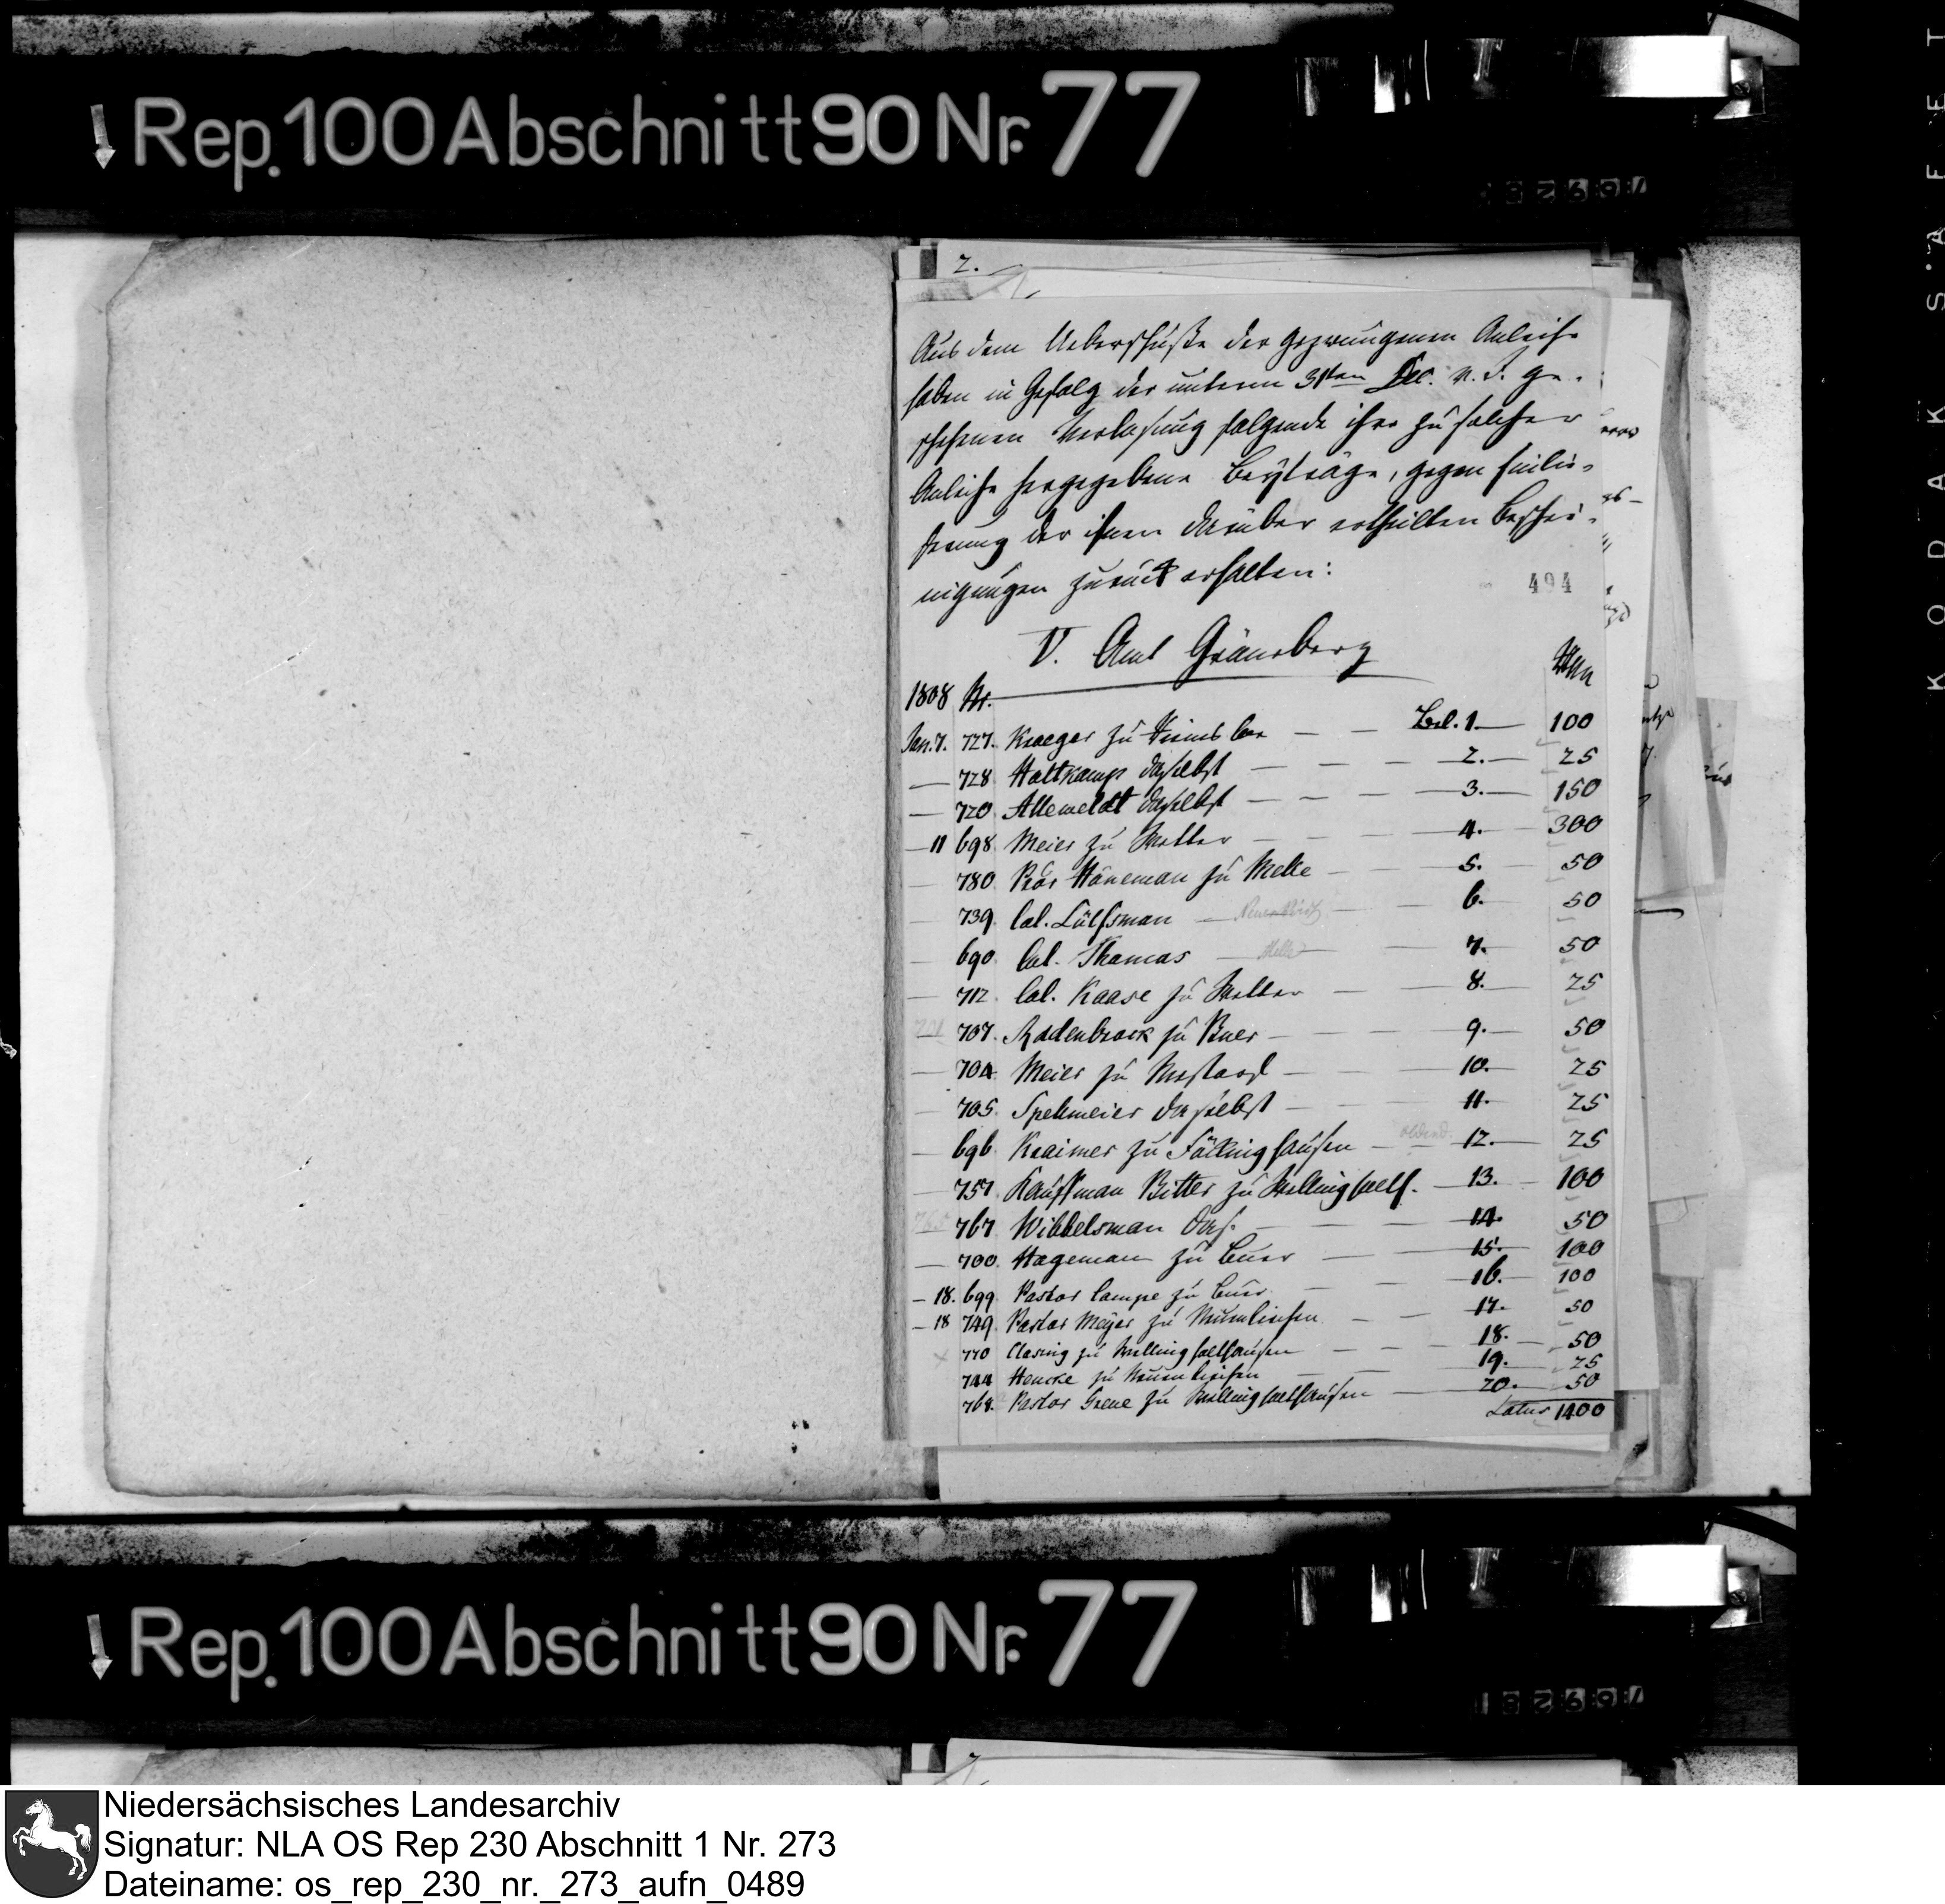 Rep. 100 Abschnitt 90 Nr. 77
2.
Aus dem Ueberschuße der gezwungenen Anleihe
haben in Gefolg der unterm 31ten Dec. v. J. ge-
schehenen Verlosung folgende ihre zu solcher
Anleihe hergegebene Beyträge, gegen Einlie-
ferung der ihnen darüber ertheilten Beschei-
nigungen zurück erhalten:
494
V. Amt Gröneberg
1808 Nr.
Jan. 7. 727. Kroeger zu Bel. 1. 100
728 Holtkamp daselbst 2. 25
720 daselbst 3. 150
11 698 Meier zu Wetter 4. 300
780 Höneman zu Melle 5. 50
739 Col. Lülfsman 6. 50
690 Col. Thomas 7. 50
712. Col. Kaase zu Wetter 8. 25
707. Rodenbrock zu Buer 9. 50
704 Meier zu 10. 25
705 daselbst 11. 25
696 Kraimer zu Föckinghausen 12. 25
757 Kauffman Bitter zu Wellingholth. 13. 100
767 Wibbelsman das. 14. 50
700. Hageman zu Buer 15. 100
18. 699 Pastor Lampe zu Buer 16. 100
18 749 Pastor Meyer zu Neuenkirchen 17. 50
770 Clasing zu Wellingholthausen 18. 50
744 Hencke zu Neuenkirchen 19. 25
768. Pastor Grene zu Wellingholthausen 20. 50
Latus 1400
Rep. 100 Abschnitt 90 Nr. 77
KODAK SAFET
Niedersächsisches Landesarchiv
Signatur: NLA OS Rep 230 Abschnitt 1 Nr. 273
Dateiname: os_rep_230_nr._273_aufn_0489